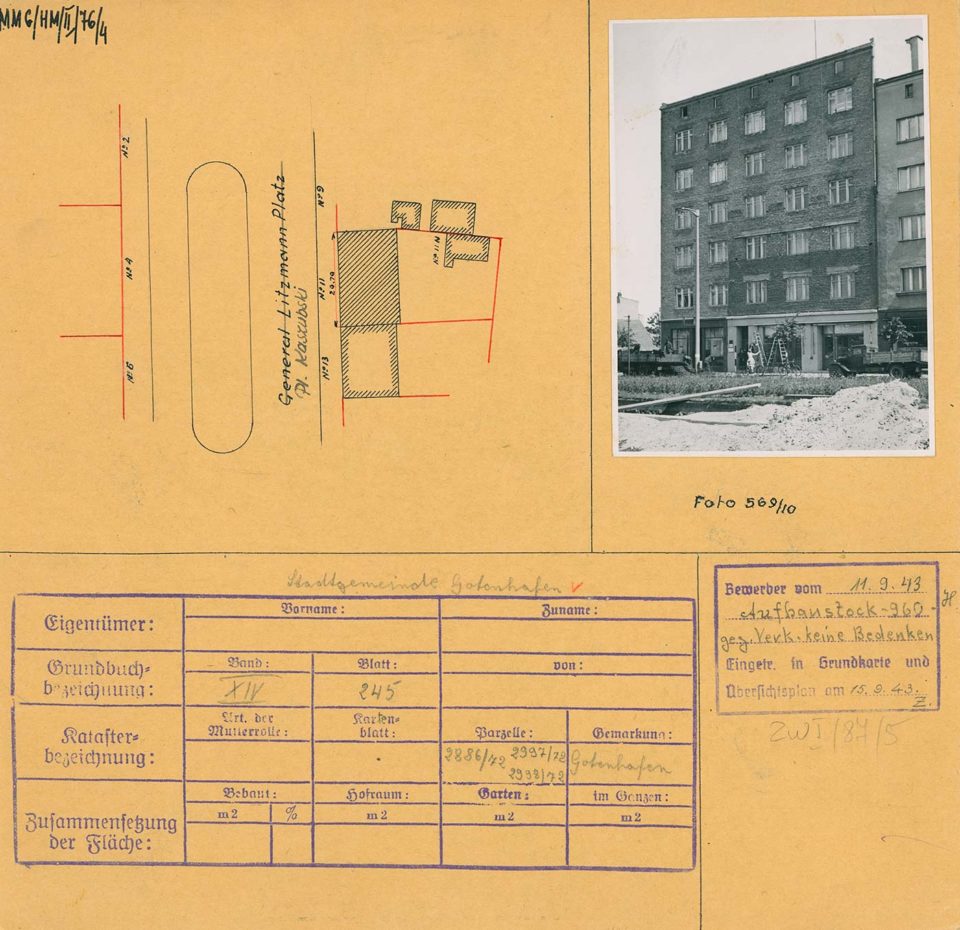 MMG/HM/II/76/4
No 2
No 4
No 6
General Litzmann Platz
Pl. Kaszubski
No 9
No 11
24.70
No 13
No 11 A
Foto 569/10
Stadtgemeinde Gotenhafen
Eigentümer:
Vorname:
Zuname:
Grundbuch-
bezeichnung:
Band:
Blatt:
von:
XIV
245
Kataster-
bezeichnung:
Art. der
Mutterrolle:
Karten-
blatt:
Parzelle:
Gemarkung:
2886/72 2997/72
2998/72
Gotenhafen
Zusammensetzung
der Fläche:
Bebaut:
Hofraum:
Garten:
im Ganzen:
m2
%
m2
m2
m2
Bewerber vom 11.9.43
Aufbaustock-960-H.
geg. Verk. keine Bedenken
Eingetr. in Grundkarte und
Übersichtsplan am 15.9.43.
Z.
ZWI/87/5